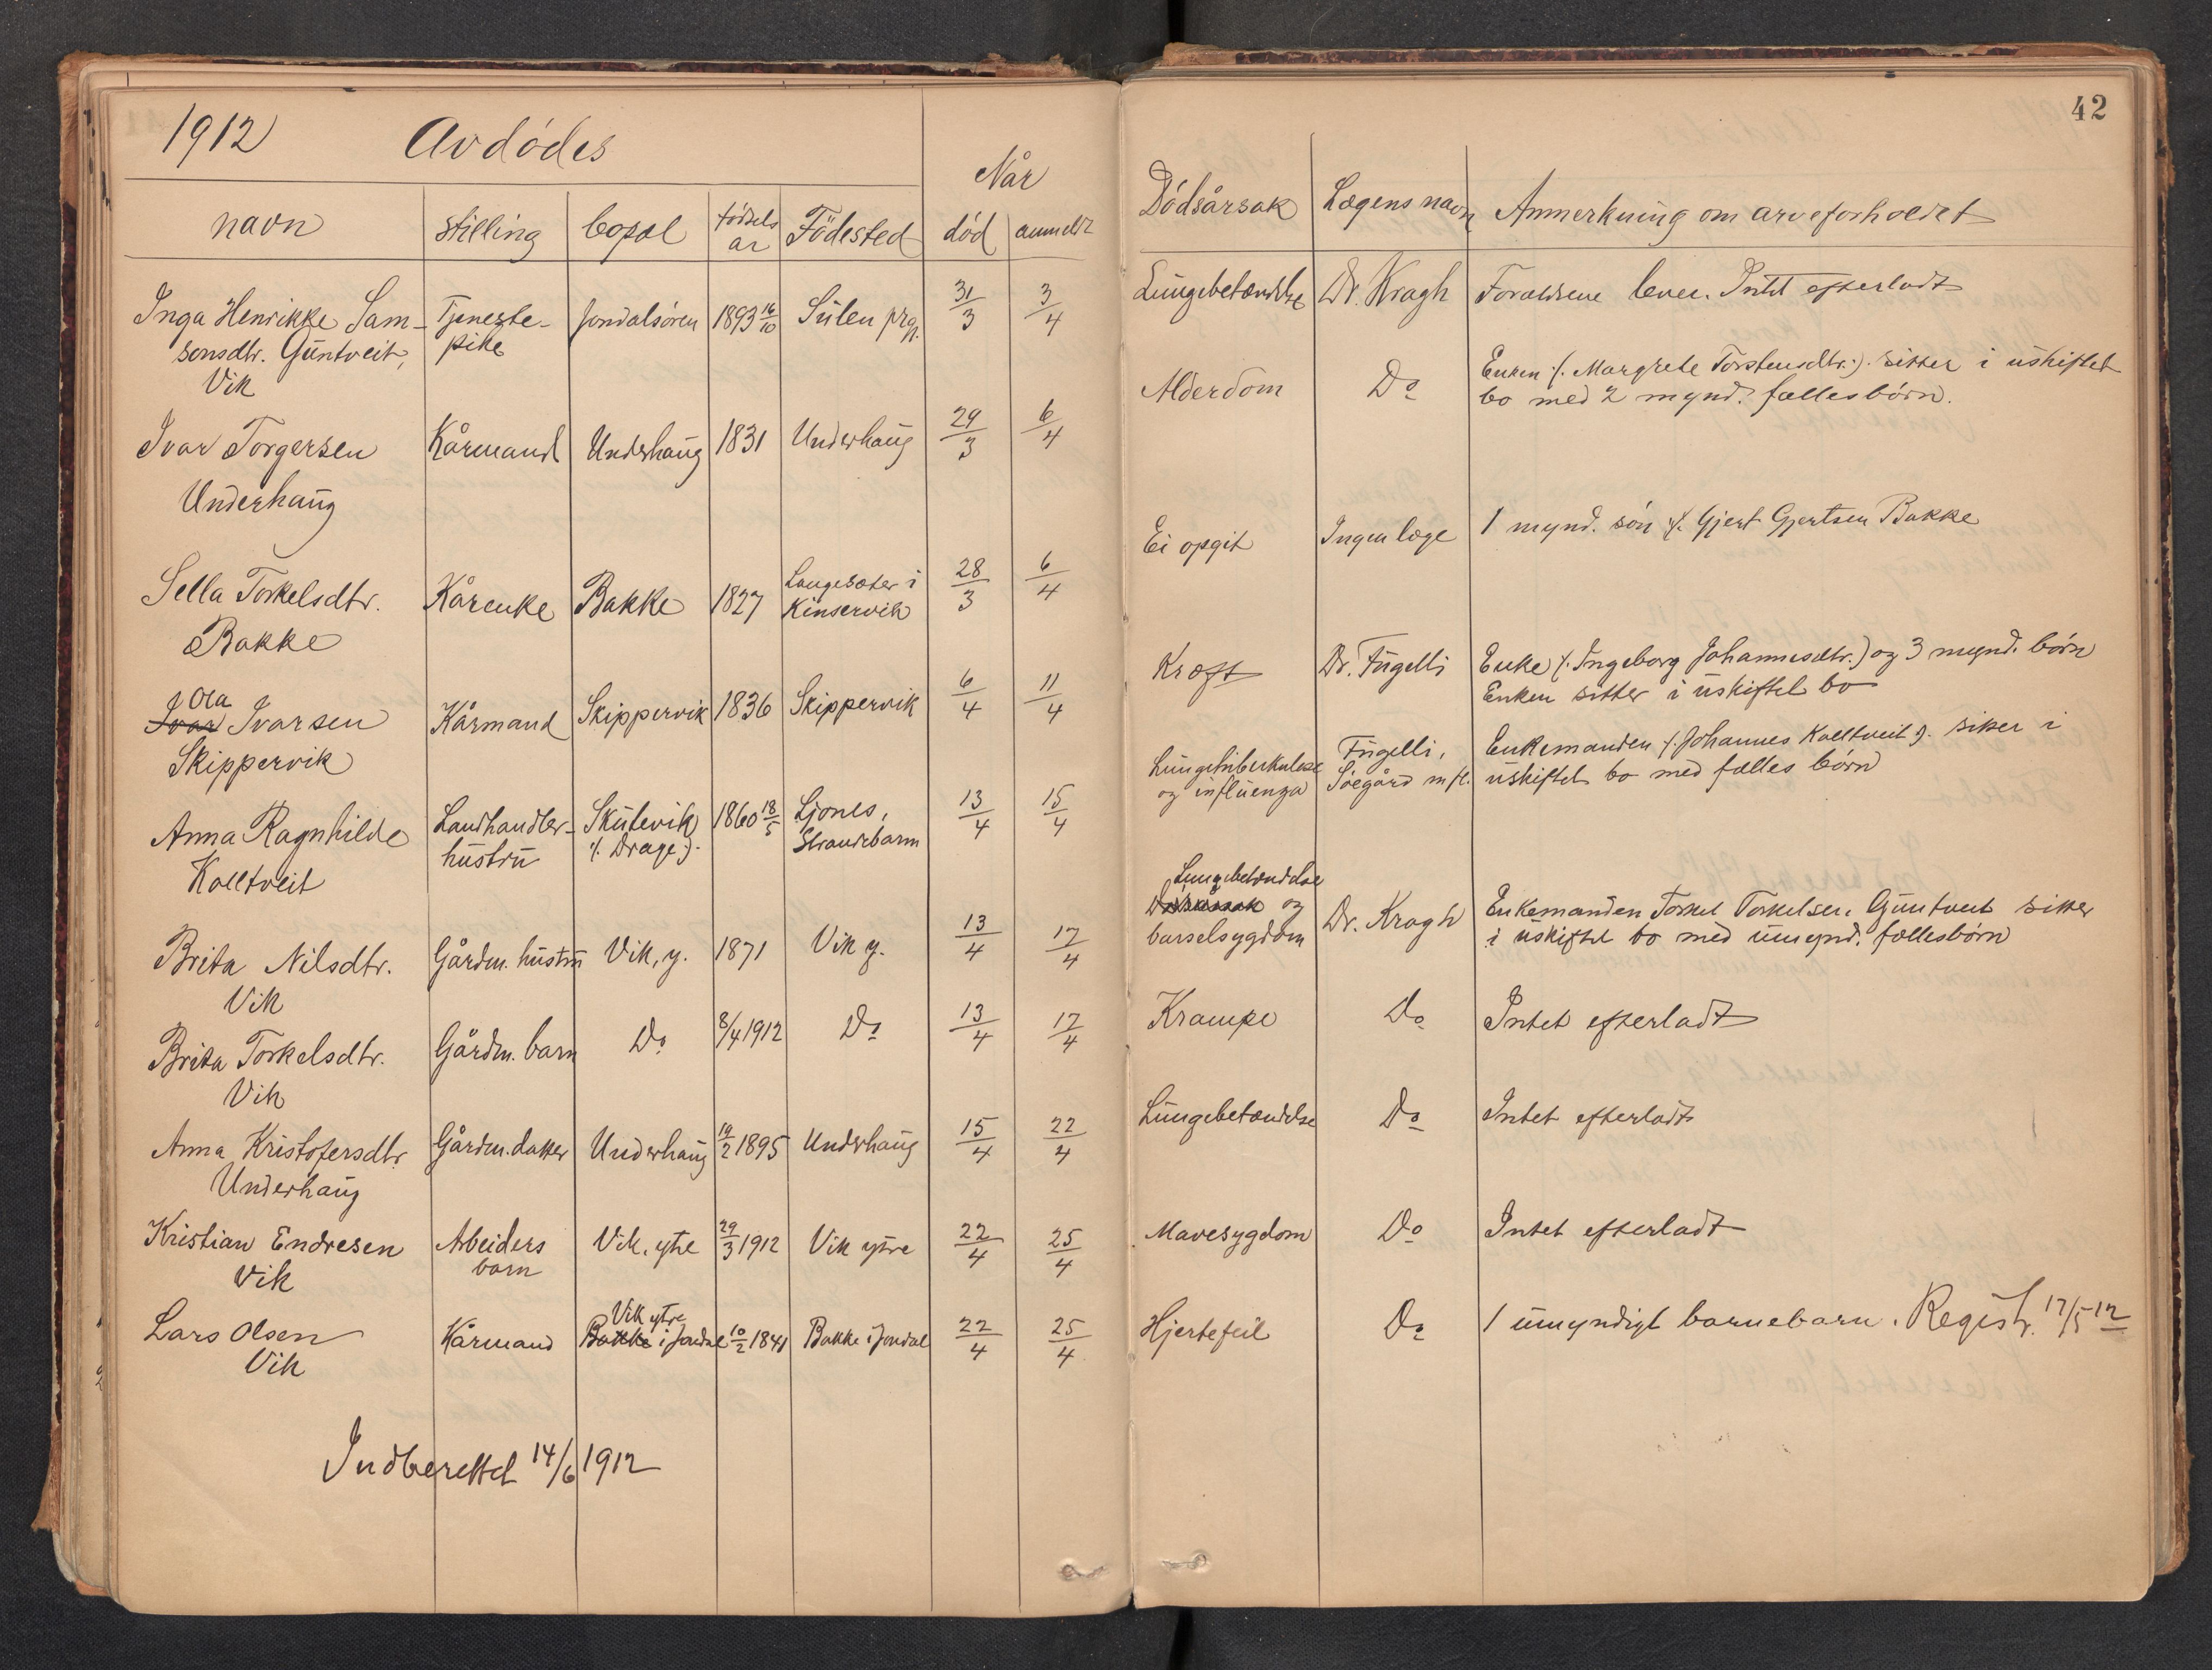 1912 Avdødes
Når
navn stilling bopæl fødsels
år Födested død anmeldt
Inga Henrikke Sam- Tjeneste- Jondalsøren 1893 16/10 Sülen prgj. 31/3 3/4
sonsdtr. Güntveit, pike
Vik
Ivar Torgersen Kårmand Underhaüg 1831 Underhaüg 29/3 6/4
Underhaüg
Sella Torkelsdtr. Kårenke Bakke 1827 Langesæter i 28/3 6/4
Bakke Kinservik
Ola
Ivar Ivarsen Kårmand Skippervik 1836 Skippervik 6/4 11/4
Skippervik
Anna Ragnhilde Landhandler- Skütevik 1860 18/5 Ljones, 13/4 15/4
Koltveit hüstrü (: Drage :) Strandebarm
Brita Nilsdtr. Gårdm. hüstrü Vik, y. 1871 Vik y. 13/4 17/4
Vik
Brita Torkelsdtr. Gårdm. barn Do 8/4 1912 Do 13/4 17/4
Vik
Anna Kristofersdtr. Gårdm. datter Underhaüg 19/2 1895 Underhaüg 15/4 22/4
Underhaüg
Kristian Endresen Arbeiders Vik, ytre 29/3 1912 Vik ytre 22/4 25/4
Vik barn
Vik ytre
Lars Olsen Kårmand Bakke i Jondal 10/2 1841 Bakke i Jondal 22/4 25/4
Vik
Indberettet 14/6 1912
42
Dödsårsak Lægens navn Anmerkning om arveforholdet
Lüngebetændelse Dr. Kragh Forældrene lever. Intet efterladt
Alderdom Do Enken (: Margrete Torstensdtr. :) sitter i üskiftet
bo med 2 mynd. fællesbörn.
Ei opgit Ingen læge 1 mynd. sön (: Gjert Gjertsen Bakke
Kræft Dr. Fügelli Enke (: Ingeborg Johannesdtr. ) og 3 mynd. børn
Enken sitter i üskiftet bo
Lüngetüberkülose Fügelli, Enkemanden (: Johannes Koltveit :) sitter i
og inflüenza Söegård m fl. üskiftet bo med fælles børn
Lüngebetændelse
Dödsårsak og Dr. Kragh Enkemanden Torkel Torkelsen Güntveit sitter
barselsygdom i üskiftet bo med ümynd. fællesbørn
Krampe Do Intet efterladt
Lüngebetændelse Do Intet efterladt
Mavesygdom Do Intet efterladt
Hjertefeil Do 1 ümyndigt barnebarn. Registr. 17/5 12